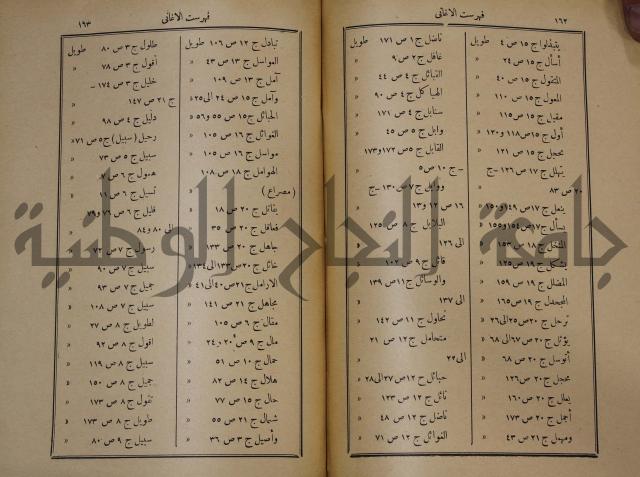 ١٦٢
فهرست الاغاني
يتبدلوا ج ١٥ ص ٤ طويل
أسأل ج ١٥ ص ٢٤ «
المتقول ج ١٥ ص ٤٠ «
المعول ج ١٥ ص ١١٠ «
مقيل ج ١٥ ص ١١٥ «
أول ج ١٥ ص ١١٨ و ١٢٠ «
بحجل ج ١٥ ص ١٢١ «
يتهلل ج ١٧ ص ١٢٦ – ج
٢٠ ص ٨٣ «
ينعل ج ١٧ ص ١٤٩ و ١٥٠ «
يسأل ج ١٧ ص ١٥٤ و ١٥٥ «
ج ١٨ ص ١٥٣ «
ج ١٩ ص ١٢٥ «
المضلل ج ١٩ ص ١٥٩ «
المجدل ج ١٩ ص ١٦٥ «
ترحل ج ٢٠ ص ٢٥ الى ٢٦ «
يؤثل ج ٢٠ ص ٦٧ الى ٦٨ «
أتوسل ج ٢٠ ص ٦٨ «
محجل ج ٢٠ ص ١٢٦ «
يعلل ج ٢٠ ص ١٦٠ «
أجمل ج ٢٠ ص ١٧٣ «
ومهمل ج ٢١ ص ٤٣ «
ناضل ج ١ ص ١٧١ طويل
غافل ج ٢ ص ٩ «
القبائل ج ٤ ص ٤٤ «
الهياكل ج ٤ ص ٩٠ «
سنابل ج ٤ ص ١٧١ «
وابل ج ٥ ص ٤٥ «
القابل ج ٥ ص ١٧٢ و ١٧٣
– ج ١٠ ص ٥ «
ووابل ج ٧ ص ١٣٠ – ج
١٦ ص ١٢ و ١٣ «
البلابل ج ٨ ص ١٢٥
الى ١٢٦ «
قائل ج ٩ ص ١٠٢ «
والوسائل ج ١١ ص ١٣٩
الى ١٣٧ «
تحاول ج ١١ ص ١٤٢ «
متحامل ج ١٢ ص ٢١
الى ٢٢ «
حبائل ج ١٢ ص ٢٧ الى ٢٨ «
نائل ج ١٢ ص ١٢٣ «
ناضل ج ١٢ ص ٤٨ «
الغوائل ج ١٢ ص ٧١ «
فهرست الاغاني
١٦٣
تبادل ج ١٢ ص ١٠٦ طويل
المواسل ج ١٣ ص ٤٣ «
آمل ج ١٣ ص ١٠٩ «
وآمل ج ١٥ ص ٢٤ الى ٢٥ «
الحبائل ج ١٥ ص ٥٥ و ٥٦ «
الغوائل ج ١٦ ص ١٠٥ «
مواسل ج ١٦ ص ١٠٥ «
الهوامل ج ١٨ ص ١٠٨
(مصراع) «
يقاتل ج ٢٠ ص ١٨ «
فعاقل ج ٢٠ ص ٣٥ «
جاهل ج ٢٠ ص ١٣٣ «
غائل ج ٢٠ ص ١٣٣ الى ١٣٤ «
الارامل ج ٢١ ص ٤٠ الى ٤١ «
مجاهل ج ٢١ ص ١٤١ «
مقال ج ٦ ص ١٠٥ «
مال ج ٩ ص ٢٠ و ٢٤ «
جمال ج ١٠ ص ٥١ «
هلال ج ١٤ ص ٨٢ «
حال ج ١٥ ص ٧٧ «
شمال ج ٢١ ص ٥٥ «
وأصيل ج ٣ ص ٣٦ «
طلول ج ٣ ص ٨٠ طويل
أقول ج ٣ ص ٧٨ «
خليل ج ٣ ص ١٧٤ –
ج ٢١ ص ١٤٧ «
دليل ج ٤ ص ٩٨ «
رحيل (سبيل) ج ٥ ص ٧١ «
سبيل ج ٥ ص ٧٣ «
همول ج ٦ ص ٧ «
ج ٦ ص ١١ «
قليل ج ٦ ص ٧٦ و ٧٩
الى ٨٠ و ٨٤ «
رسول ج ٧ ص ٧٢ «
سبيل ج ٧ ص ٩٠ «
جميل ج ٧ ص ٩٣ «
سبيل ج ٧ ص ١٠٨ «
لطويل ج ٨ ص ٢٧ «
اقول ج ٨ ص ٩٢ «
سبيل ج ٨ ص ١١٩ «
جميل ج ٨ ص ١٥٠ «
تقول ج ٨ ص ١٧٣ «
طويل ج ٨ ص ١٧٣ «
سبيل ج ٩ ص ٨٠ «
جامعة النجاح الوطنية